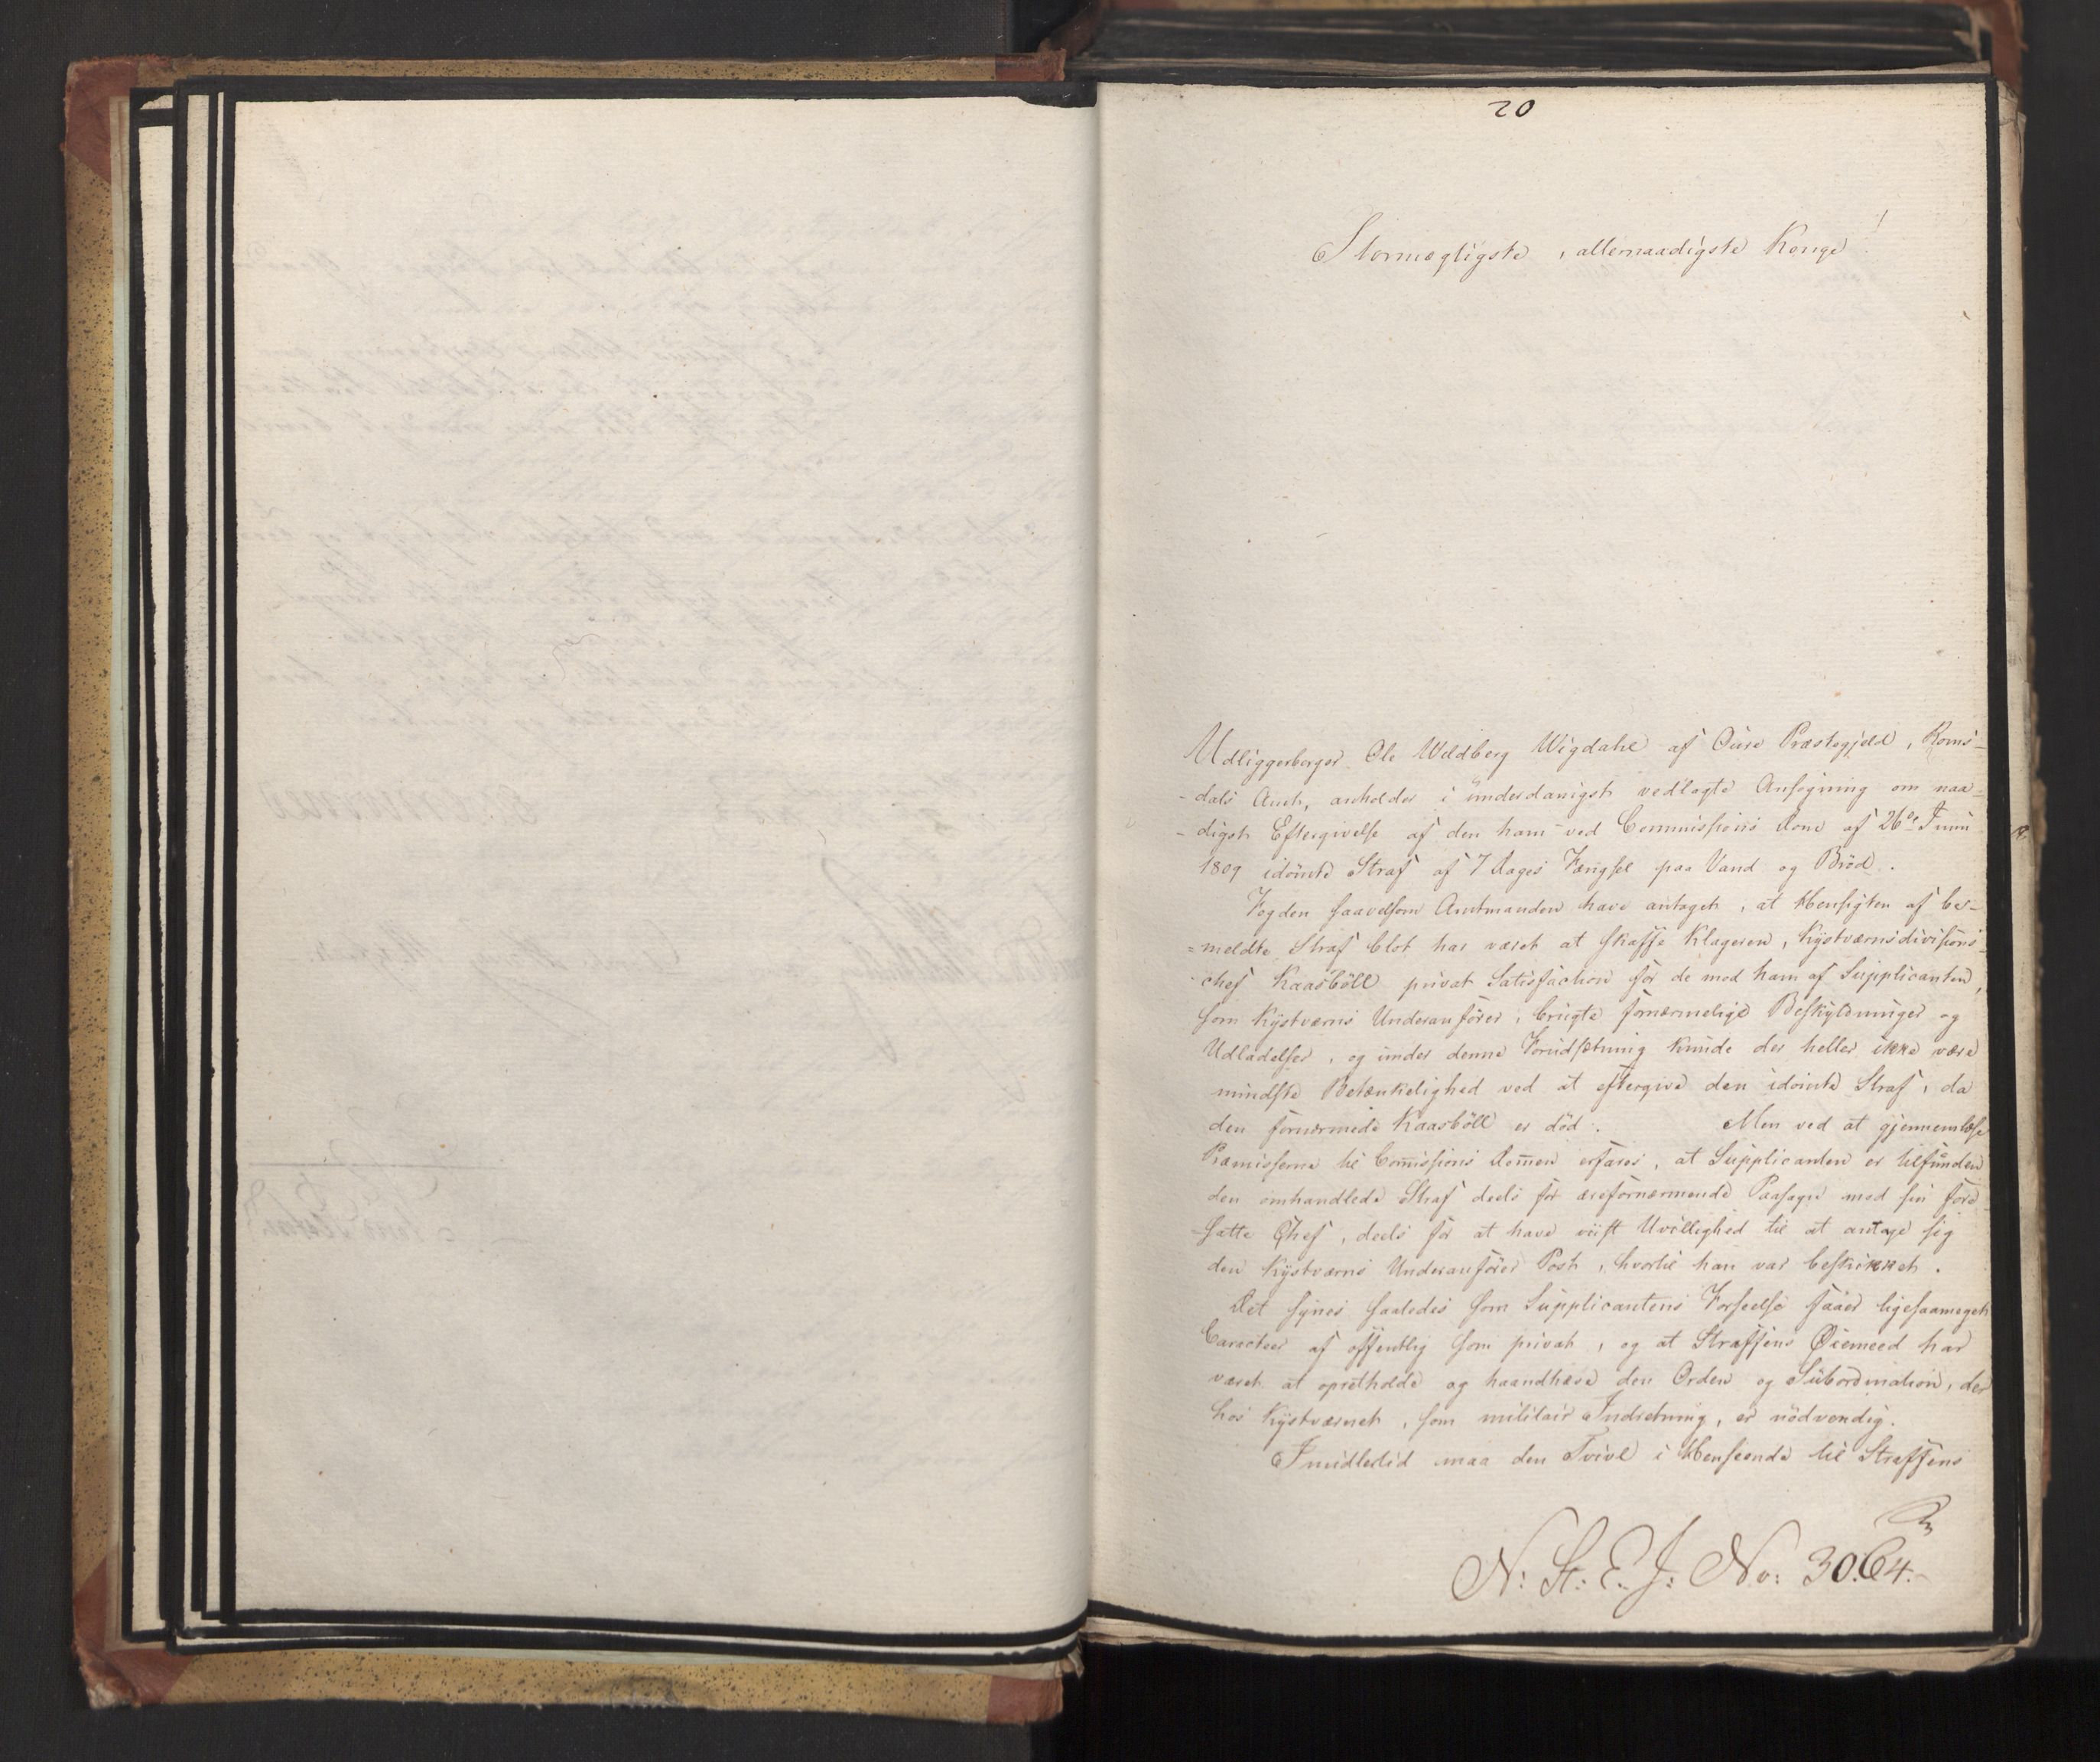 20
Stormægtigste, allernaadigste Konge!
Udliggerborger Ole Weldberg Wigdahl af Oure Præstegjeld, Roms-
-dals Amt, anholder i underdanigst vedlagte Ansøgning om naa-
-digst Eftergivelse af den ham ved Commissions Dom af 26de Juni
1809 idömte Straf af 7 Dages Fængsel paa Vand og Bröd.
Fogden saavelsom Amtmanden have antaget, at Hensigten af be-
=meldte Straf blot har været at skaffe Klageren, Kystværnsdivisions-
-chef Kaasböll privat Satisfaction for de mod ham af Supplicanten,
som Kystværns Underanförer, brugte fornærmelige Beskyldninger og
Udladelser, og under denne Forudsætning kunde der heller ikke være
mindste Betænkelighed ved at eftergive den idömte Straf, da
den fornærmede Kaasböll er död. Men ved at gjennemlæse
Præmisserne til Com̄issions Dom̄en erfares, at Supplicanten er tilfunden
den omhandlede Straf deels for ærefornærmende Paasagn mod sin fore-
-satte Chef, deels for at have viist Uvillighed til at antage sig
den Kystværns Underanförer Post, hvortil han var beskikket.
Det synes saaledes som Supplicantens Forseelse faaer ligesaameget
Caracteer af offentlig som privat, og at Straffens Øiemeed har
været at opretholde og haandhæve den Orden og Subordination, der
hos Kystværnet, som militair Indretning, er nödvendig.
Imidlertid maa den Tvivl i Henseende til Straffens
N: St: E. J: No: 30.64.-